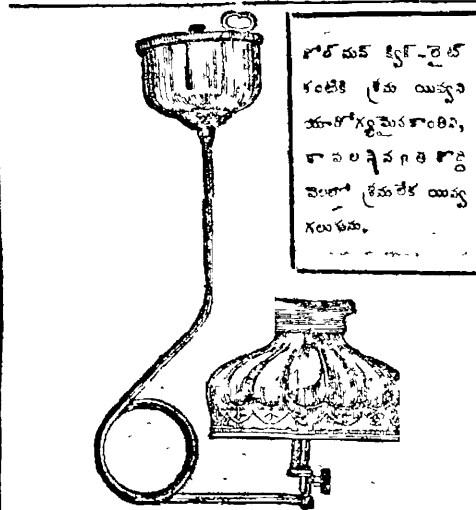 కోల్ మన్ క్విక్-లైట్
కంటికి శ్రమ యివ్వని
యారోగ్యమైన కాంతిని,
కావలసినంత కొద్ది
వెలలో శ్రమ లేక యివ్వ
గలుగును.